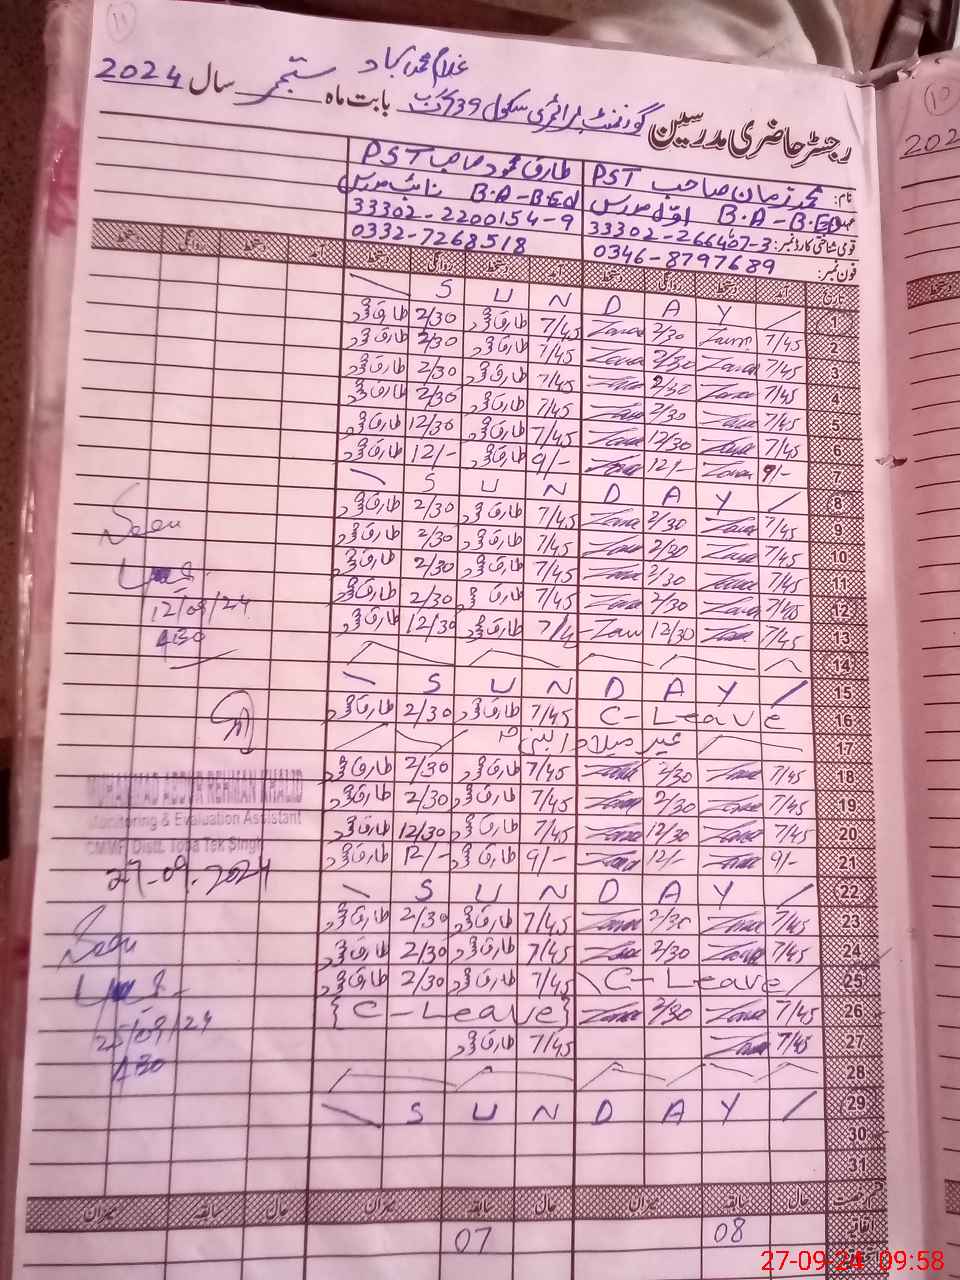 11
10
202
رجسٹر حاضری مدرسین گورنمنٹ پرائمری سکول 739 گ ب بابت ماہ ستمبر سال 2024
غلام محمد آباد
نام: محمد زمان صاحب PST طارق محمود صاحب PST
عہدہ: B.A-B.ED اول مدرس B.A-B.ED نائب مدرس
قومی شناختی کارڈ نمبر: 33302-266407-3 33302-2200154-9
فون نمبر: 0346-8797689 0332-7268518
تاریخ آمد دستخط روانگی دستخط آمد دستخط روانگی دستخط آمد دستخط روانگی دستخط
1 \ S U N D A Y /
2 7/45 2/30 7/45 طارق محمود 2/30 طارق محمود
3 7/45 2/30 7/45 طارق محمود 2/30 طارق محمود
4 7/45 2/30 7/45 طارق محمود 2/30 طارق محمود
5 7/45 2/30 7/45 طارق محمود 2/30 طارق محمود
6 7/45 12/30 7/45 طارق محمود 12/30 طارق محمود
7 9/- 12/- 9/- طارق محمود 12/- طارق محمود
8 \ S U N D A Y /
9 7/45 2/30 7/45 طارق محمود 2/30 طارق محمود
10 7/45 2/30 7/45 طارق محمود 2/30 طارق محمود
11 7/45 2/30 7/45 طارق محمود 2/30 طارق محمود
12 7/45 2/30 7/45 طارق محمود 2/30 طارق محمود
13 7/45 12/30 طارق محمود 12/30 طارق محمود
12/09/24
14
15 \ S U N D A Y /
16 C-Leave 7/45 طارق محمود 2/30 طارق محمود
17 عید میلاد النبی
18 7/45 2/30 7/45 طارق محمود 2/30 طارق محمود
19 7/45 2/30 7/45 طارق محمود 2/30 طارق محمود
20 7/45 12/30 7/45 طارق محمود 12/30 طارق محمود
21 9/- 12/- 9/- طارق محمود 12/- طارق محمود
MUHAMMAD ABDUR REHMAN KHALID
Monitoring & Evaluation Assistant
CMMF Distt. Toba Tek Singh
27-09-2024
22 \ S U N D A Y /
23 7/45 2/30 7/45 طارق محمود 2/30 طارق محمود
24 7/45 2/30 7/45 طارق محمود 2/30 طارق محمود
25 \ C-Leave / 7/45 طارق محمود 2/30 طارق محمود
26 7/45 2/30 {C-Leave}
27 7/45 7/45 طارق محمود
Seen
25/09/24
28
29 \ S U N D A Y /
30
31
قسم رخصت حال سابقہ میزان حال سابقہ میزان حال سابقہ میزان
اتفاقیہ 08 07
27-09-24 09:58